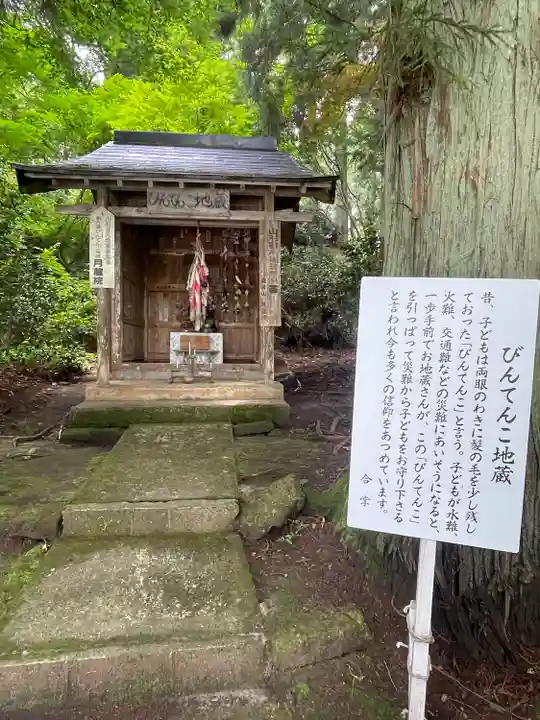 びんてんこ地蔵
月蔵院
びんてんこ地蔵
昔、子どもは両眼のわきに髪の毛を少し残し
ておった「びんてんこ」と言う。子どもが水難、
火難、交通難などの災難にあいそうになると、
一歩手前でお地蔵さんが、この「びんてんこ」
を引っぱって災難から子どもをお守り下さる
と言われ今も多くの信仰をあつめています。
合掌